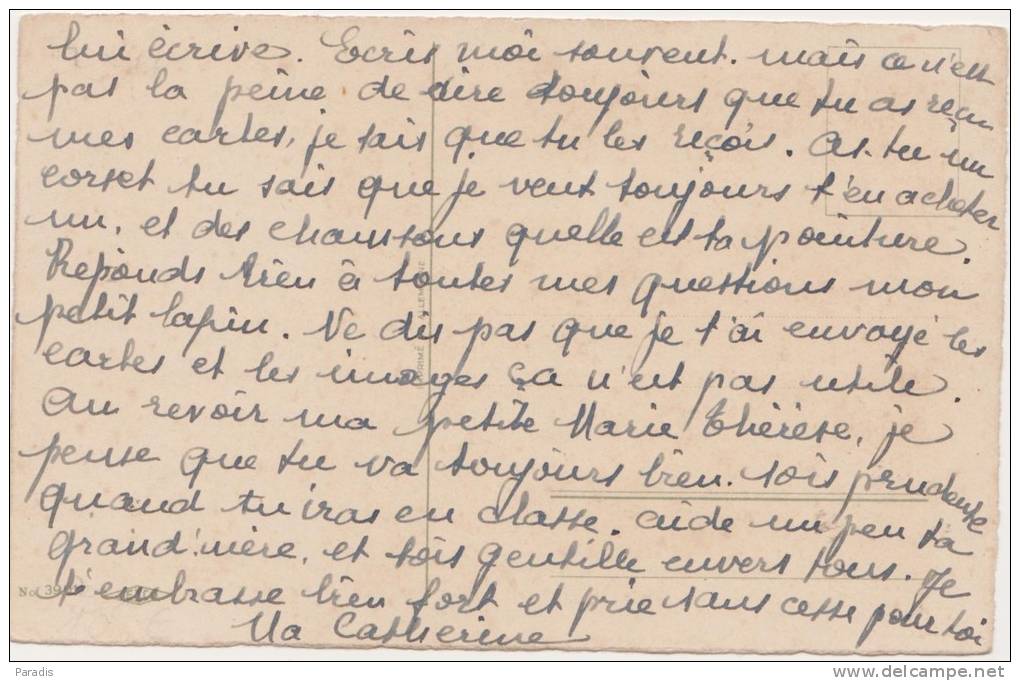 lui écrive. Ecris moi souvent. mais ce n'est
pas la peine de dire toujours que tu as reçu
mes cartes, je sais que tu les reçois. As-tu un
corset tu sais que je veut toujours t'en acheter
un, et des chaussons quelle est ta pointure.
Réponds bien à toutes mes questions mon
petit lapin. Ne dis pas que je t'ai envoyé les
cartes et les images ça n'est pas utile.
Au revoir ma petite Marie Thérèse, je
pense que tu va toujours bien. sois prudente
quand tu iras en classe. aide un peu ta
grand'mère, et sois gentille envers tous. Je
t'embrasse bien fort et prie sans cesse pour toi
Ma Catherine
No 39
Paradis
www.delcampe.net